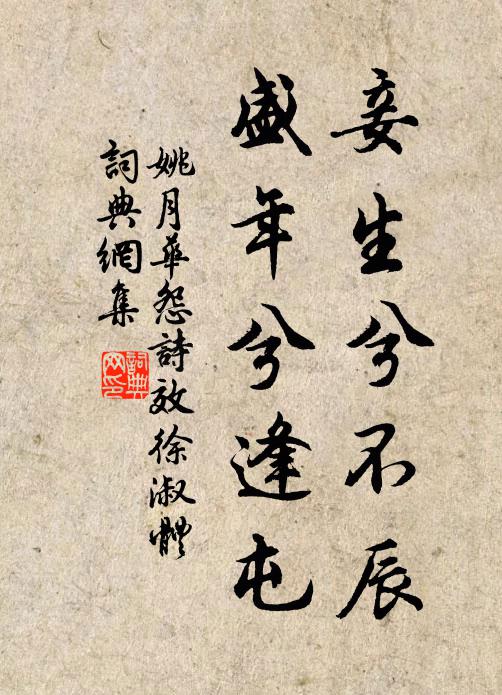 妾生兮不辰
盛年兮逢屯
姚月華怨詩效徐淑體
詞典網集
詞典网印